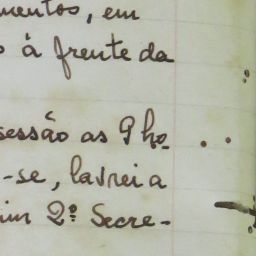 mentos, em
à frente da
sessão as 9 ho-
-se, lavrei a
im 2º Secre-